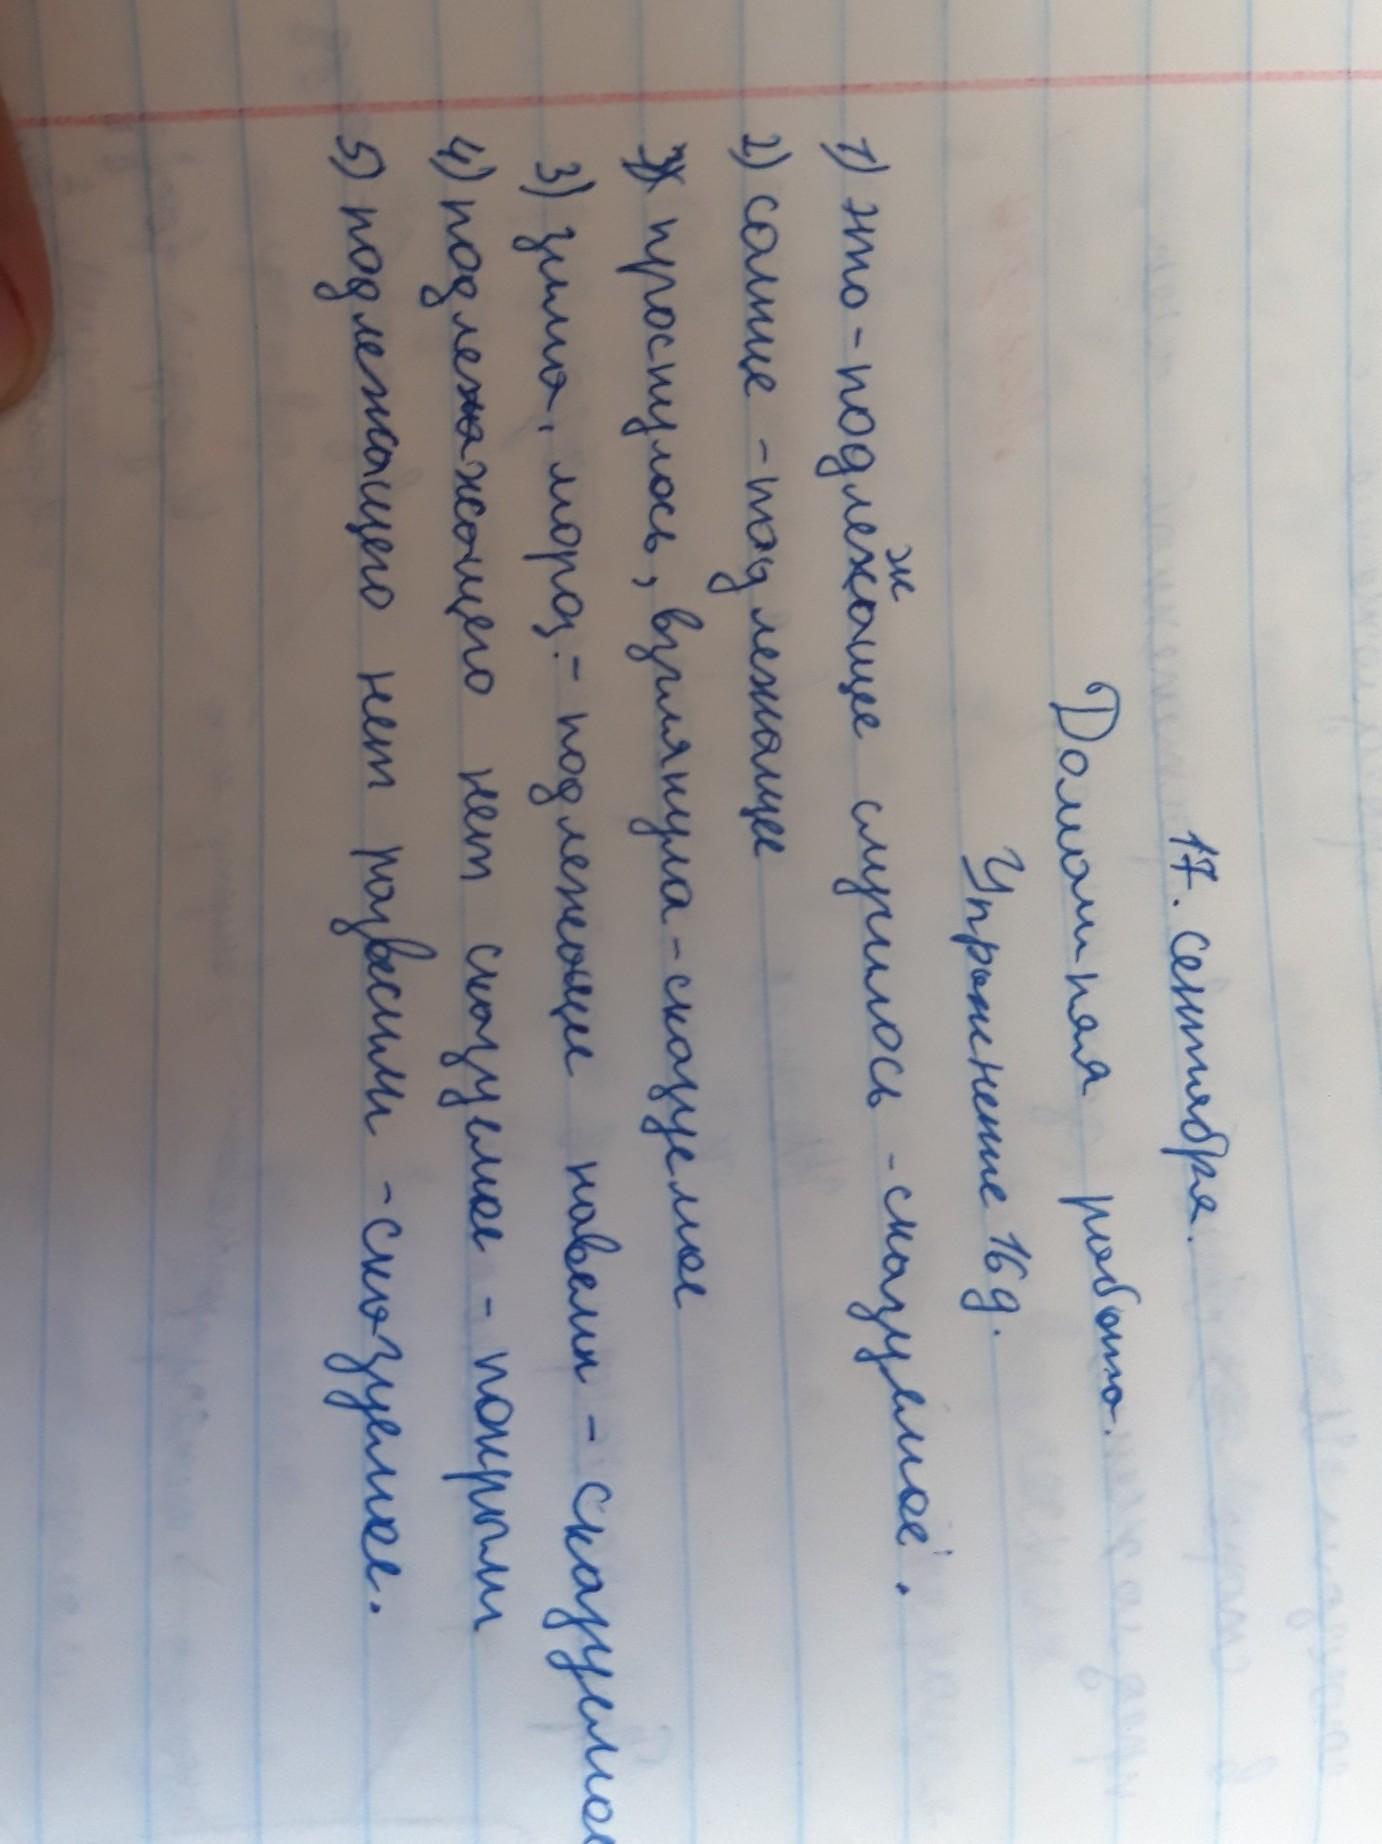 17. сентября.
Домашняя работа.
Упражнение 16 д.
1) это - подлежащее случилось - сказуемое.
2) солнце - подлежащее
проснулось, взглянула - сказуемое
3) зима, мороз - подлежащее навели - сказуемое
4) подлежащего нет сказуемое - покрыли
5) подлежащего нет развесили - сказуемое.